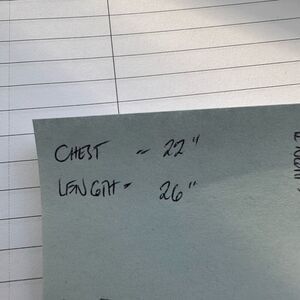 CHEST ~ 22"
LENGTH = 26"